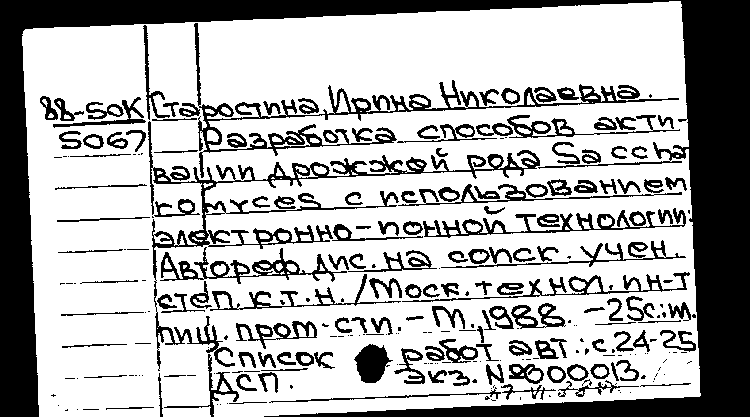 88-50К Старостина, Ирина Николаевна.
5067 Разработка способов акти-
вации дрожжей рода Saccha
romyces с использованием
электронно-ионной технологии:
Автореф. дис. на соиск. учен.
степ. к.т.н. / Моск. технол. ин-т
пищ. пром-сти. - М., 1988. - 25с.: ил.
Список работ авт.: с. 24-25
ДСП. Экз. №000013.